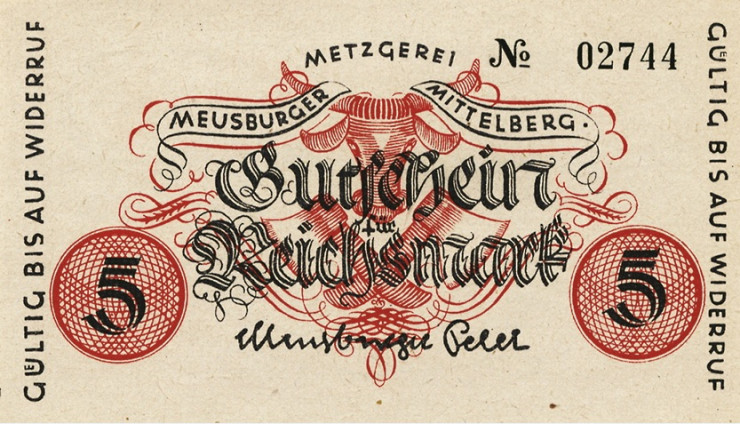 GÜLTIG BIS AUF WIDERRUF
METZGEREI № 02744
MEUSBURGER MITTELBERG.
Gutschein
für
Reichsmark
5 5
Meusburger Peter
GÜLTIG BIS AUF WIDERRUF